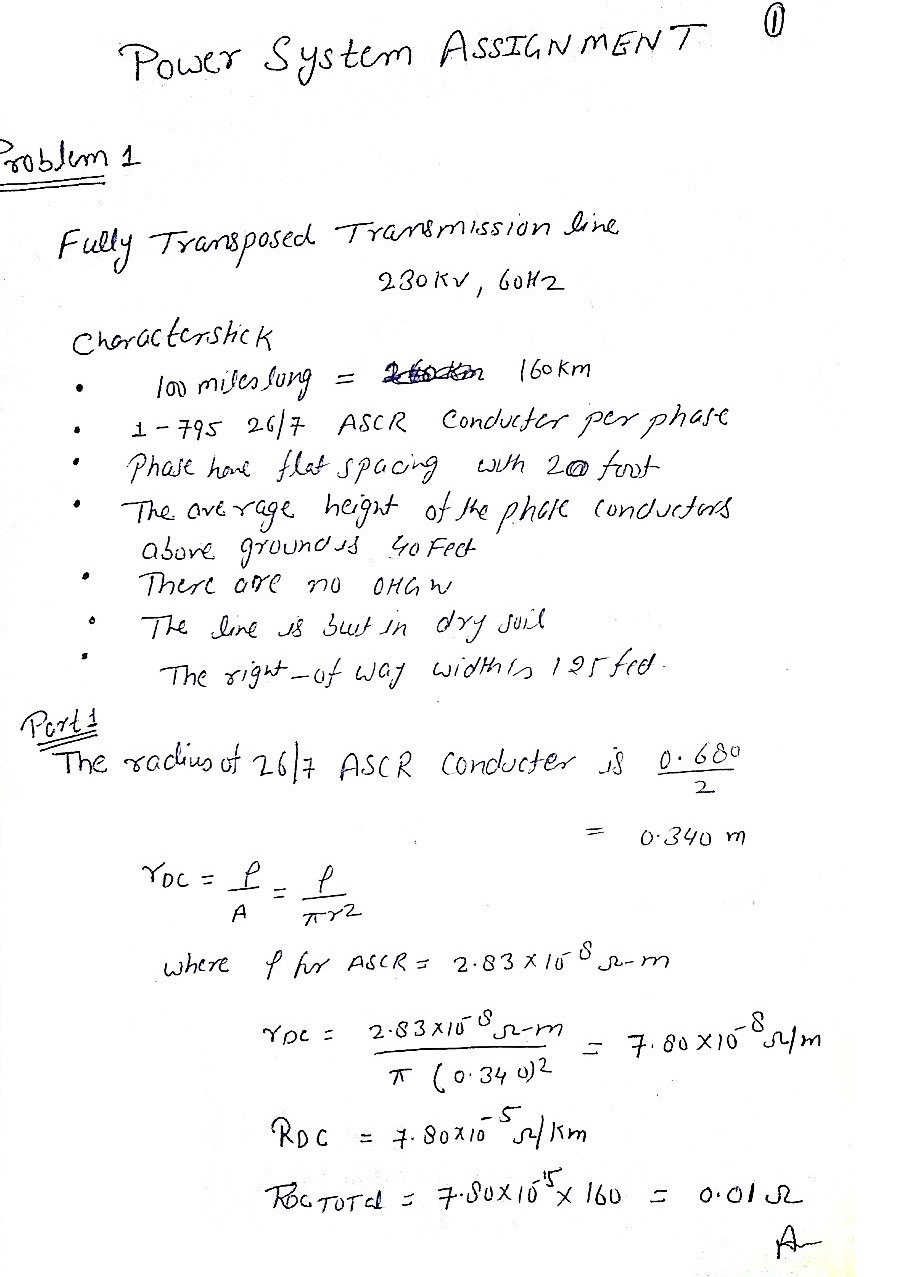 ①
Power System ASSIGNMENT
Problem 1
Fully Transposed Transmission line
230KV, 60HZ
Characterstick
• 100 miles long = 160km
• 1-795 26/7 ASCR Conducter per phase
• Phase have flat spacing with 20 foot
• The average height of the phase conductors
above ground is 40 Feet
• There are no OHGW
• The line is buit in dry soil
• The right-of way width is 125 feet.
Part 1
The radius of 26/7 ASCR Conducter is 0.680/2
= 0.340 m
r_DC = ρ/A = ρ/πr2
where ρ for ASCR = 2.83 x 10^-8 Ω-m
r_DC = 2.83x10^-8 Ω-m / π (0.340)^2 = 7.80 x10^-8 Ω/m
R_DC = 7.80x10^-5 Ω/Km
R_DC TOTal = 7.80x10^-5 x 160 = 0.01 Ω